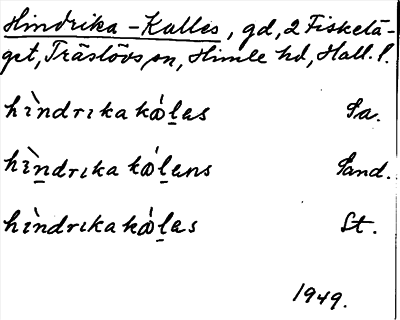 Hindrika-Kalles, gd, 2 Fisketä-
get, Träslövs sn, Himle hd, Hall. l.
hìndrıka kǻl̲as Sa.
hìn̲drıka kǻl̲ans Sand.
hìndrıka kǻl̲as St.
1949.